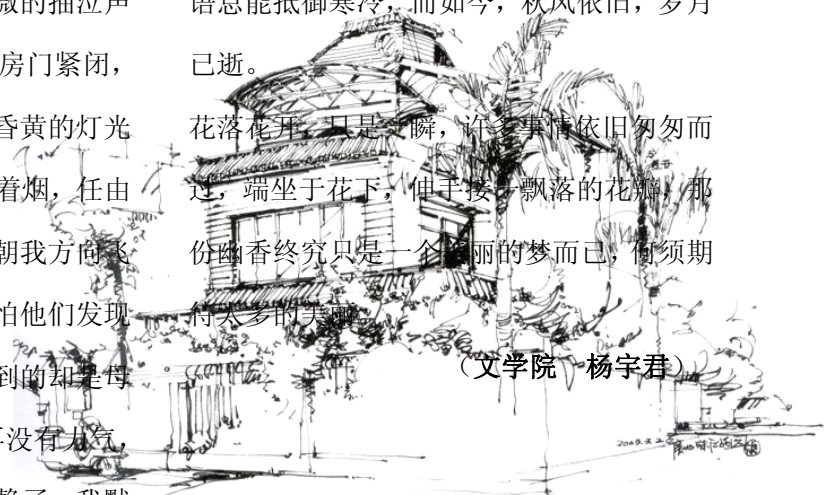 微的抽泣声
房门紧闭，
昏黄的灯光
着烟，任由
朝我方向飞
怕他们发现
到的却是母
没有力气，
语总能抵御寒冷，而如今，秋风依旧，岁月
已逝。
花落花开，只是一瞬，许多事情依旧匆匆而
过，端坐于花下，伸手接一飘落的花瓣，那
份幽香终究只是一个美丽的梦而已，何须期
待太多的美丽。
（文学院 杨宇君）